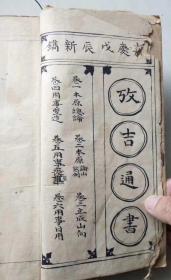 嘉慶戊辰新鐫
攷吉通書
卷一本原總論
卷二本原
卷三立成山向
卷四用事營造
卷五用事
卷六用事日用